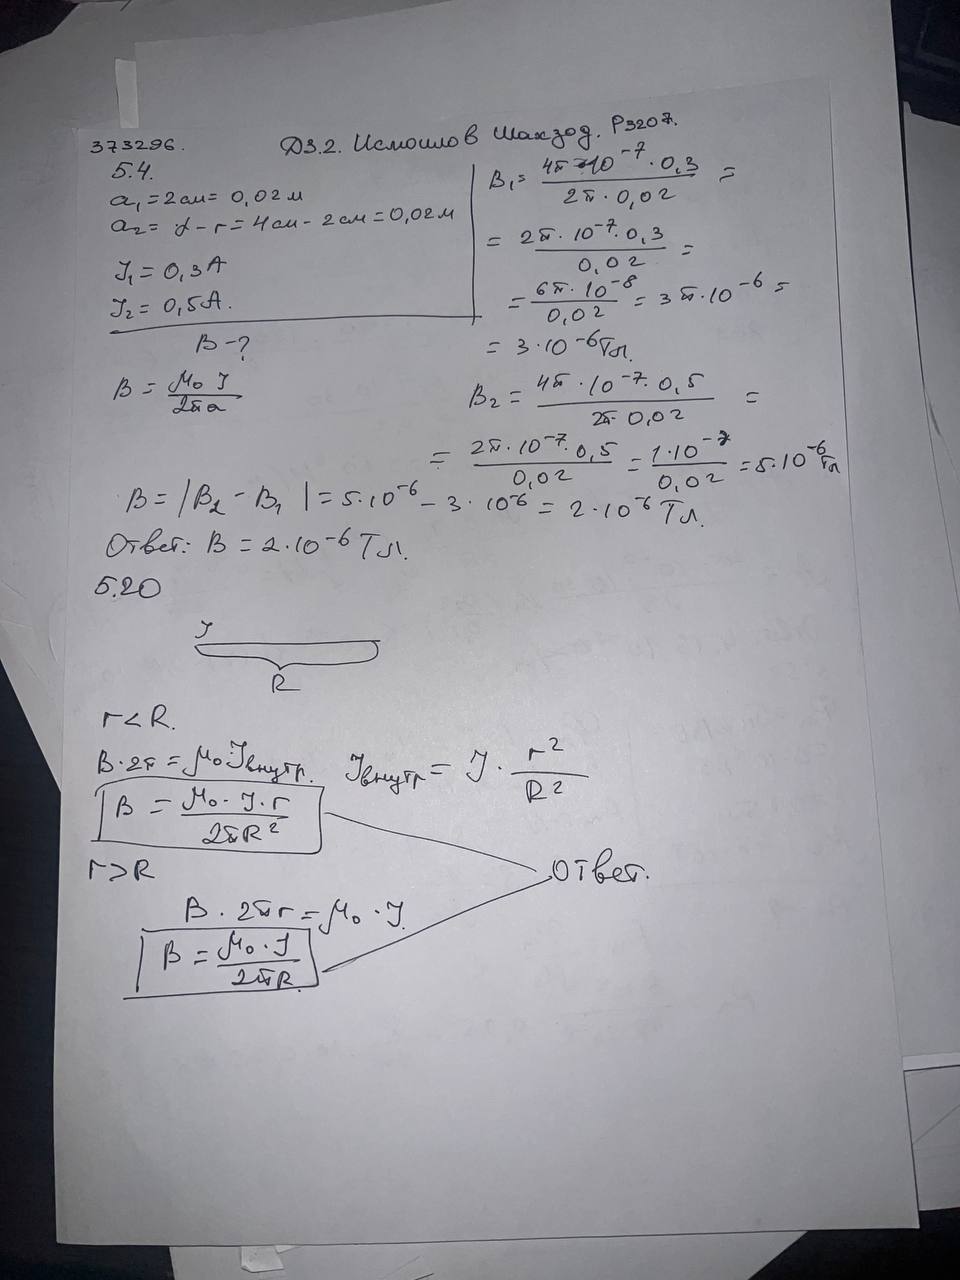 373296.
ДЗ.2. Исмоилов Шахзод. P3207.
5.4.
a₁ = 2см = 0,02м
a₂ = d - r = 4см - 2см = 0,02м
J₁ = 0,3А
J₂ = 0,5А.
B - ?
B = μ₀ J / 2πa
B₁ = 4π·10⁻⁷·0,3 / 2π·0,02 =
= 2π·10⁻⁷·0,3 / 0,02 =
= 6π·10⁻⁸ / 0,02 = 3π·10⁻⁶ =
= 3·10⁻⁶Тл.
B₂ = 4π·10⁻⁷·0,5 / 2π·0,02 =
= 2π·10⁻⁷·0,5 / 0,02 = 1·10⁻⁷ / 0,02 = 5·10⁻⁶Тл
B = |B₂ - B₁| = 5·10⁻⁶ - 3·10⁻⁶ = 2·10⁻⁶ Тл.
Ответ: B = 2·10⁻⁶ Тл.
5.20
J
R
r < R.
B·2π = μ₀ Jвнутр. Jвнутр = J · r² / R²
B = μ₀·J·r / 2πR²
r > R
Ответ.
B · 2πr = μ₀ · J.
B = μ₀·J / 2πR.